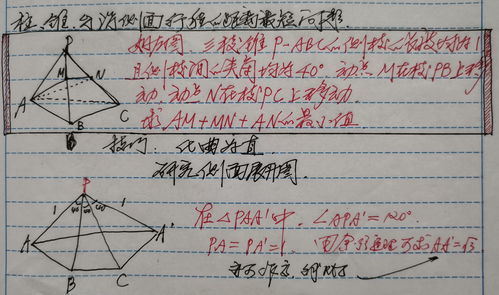 柱、锥、台沿侧面行程的距离最短问题
如右图 三棱锥 P-ABC的侧棱的长均为1
且侧棱间的夹角均为40° 动点M在棱PB上移
动 动点N在棱PC上移动.
求AM+MN+AN的最小值
P
M N
A
B
C
技巧: 化曲为直
研究侧面展开图.
P
1 40 40 40 1
A
A'
B
C
在△PAA'中. ∠APA'=120°
PA=PA'=1 由余弦定理可求AA'=√3